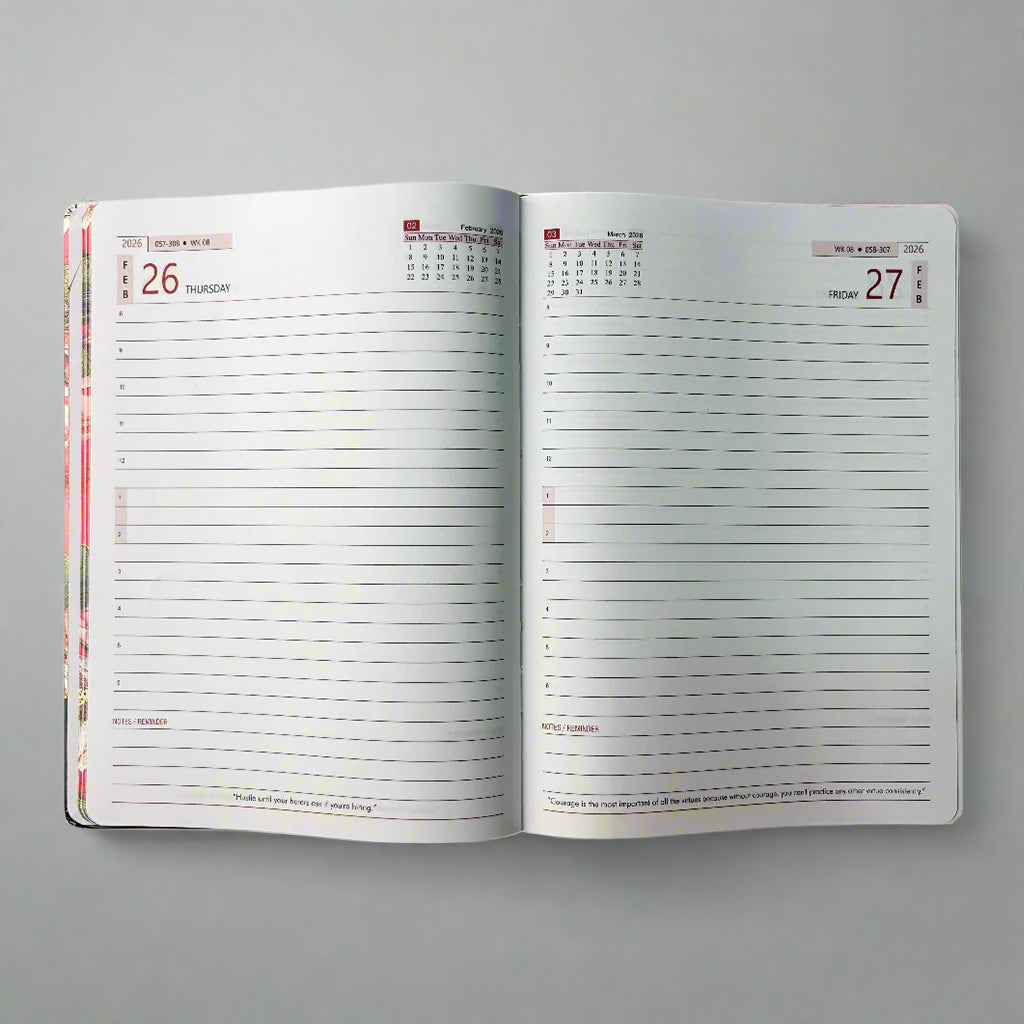 2026 057-308 • WK 08
02 February 2026
Sun Mon Tue Wed Thu Fri Sat
1 2 3 4 5 6 7
8 9 10 11 12 13 14
15 16 17 18 19 20 21
22 23 24 25 26 27 28
FEB
26 THURSDAY
8
9
10
11
12
1
2
3
4
5
6
NOTES / REMINDER
"Hustle until your haters ask if you're hiring."
03 March 2026
Sun Mon Tue Wed Thu Fri Sat
1 2 3 4 5 6 7
8 9 10 11 12 13 14
15 16 17 18 19 20 21
22 23 24 25 26 27 28
29 30 31
WK 08 • 058-307 2026
FRIDAY 27
FEB
8
9
10
11
12
1
2
3
4
5
6
NOTES / REMINDER
"Courage is the most important of all the virtues because without courage, you can't practice any other virtue consistently."